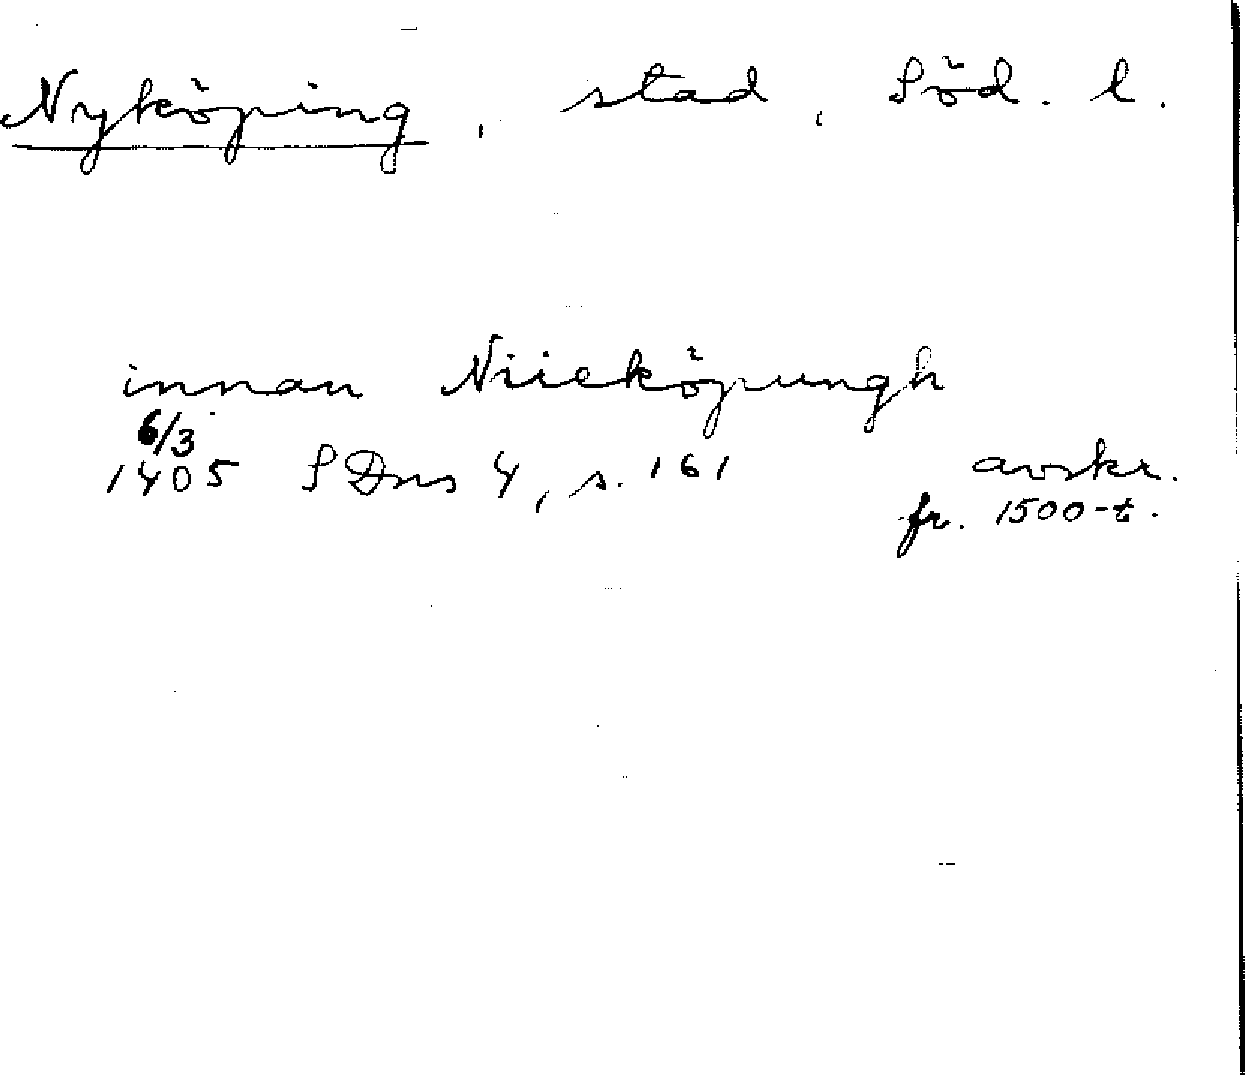 Nyköping, stad, Söd. l.
innan Niieköpungh
6/3
1405 SDns 4, s. 161 avskr.
fr. 1500-t.